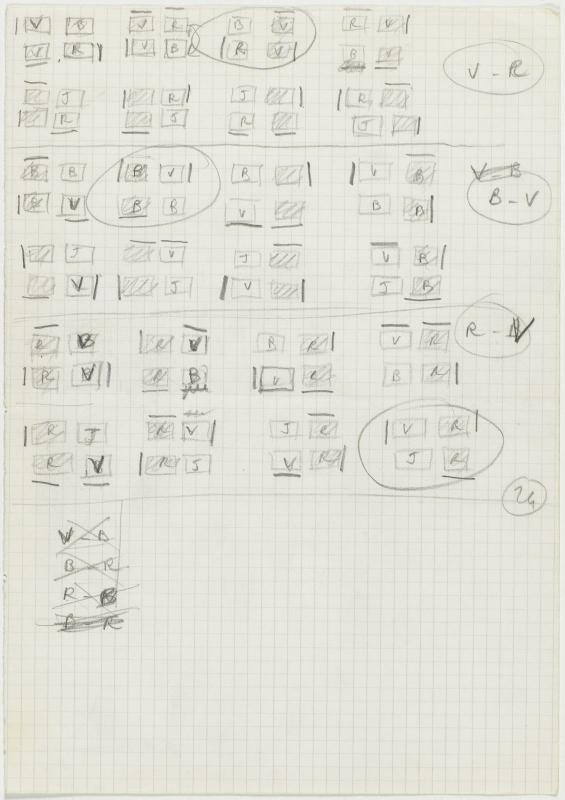 V B V R B V R V
V R V B R V B V
V - R
J R J R
R J R J
B B B V B V B
V B
B V B B V B B
B - V
J V J V B
V J V J B
R - V
R B R V B R V R
R V R B V R B R
R J R V J R V R
R V R J V R J R
24
V - B
B - R
R - B
B - R